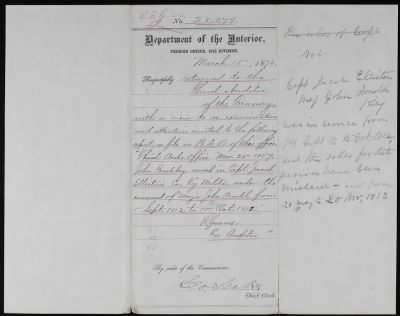 No. 28,049
Department of the Interior,
PENSION OFFICE, 1812 DIVISION,
March 15", 1873.
Respectfully returned to the
Third Auditor
of the Treasury
with a view to re-examination
and attention invited to the following
report on file in B. L. D. of this office
"Third Auds Office Mar 25 1857.
John Buckley served in Capt. Jacob
Ellistons Co. Ky. Militia under the
command of Major John Arnold from
1st Sept. 1812 to 15th Oct. 1812.
Auditor."
By order of the Commissioner,
Chief Clerk.
The rolls of Capt
Capt Jacob Elliston
Maj John Arnold
Ky
was in service from
Sept to 15 Oct 1812
and the rolls for that
period have been
mislaid - and from
20 May to 20 Nov, 1813